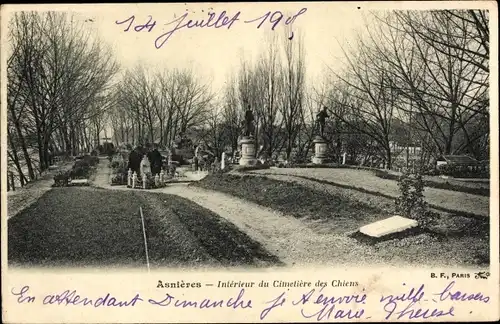 14 Juillet 1908
Asnières — Intérieur du Cimetière des Chiens
B. F., PARIS
En attendant Dimanche je t'envoie mille baisers
Marie-Thérèse